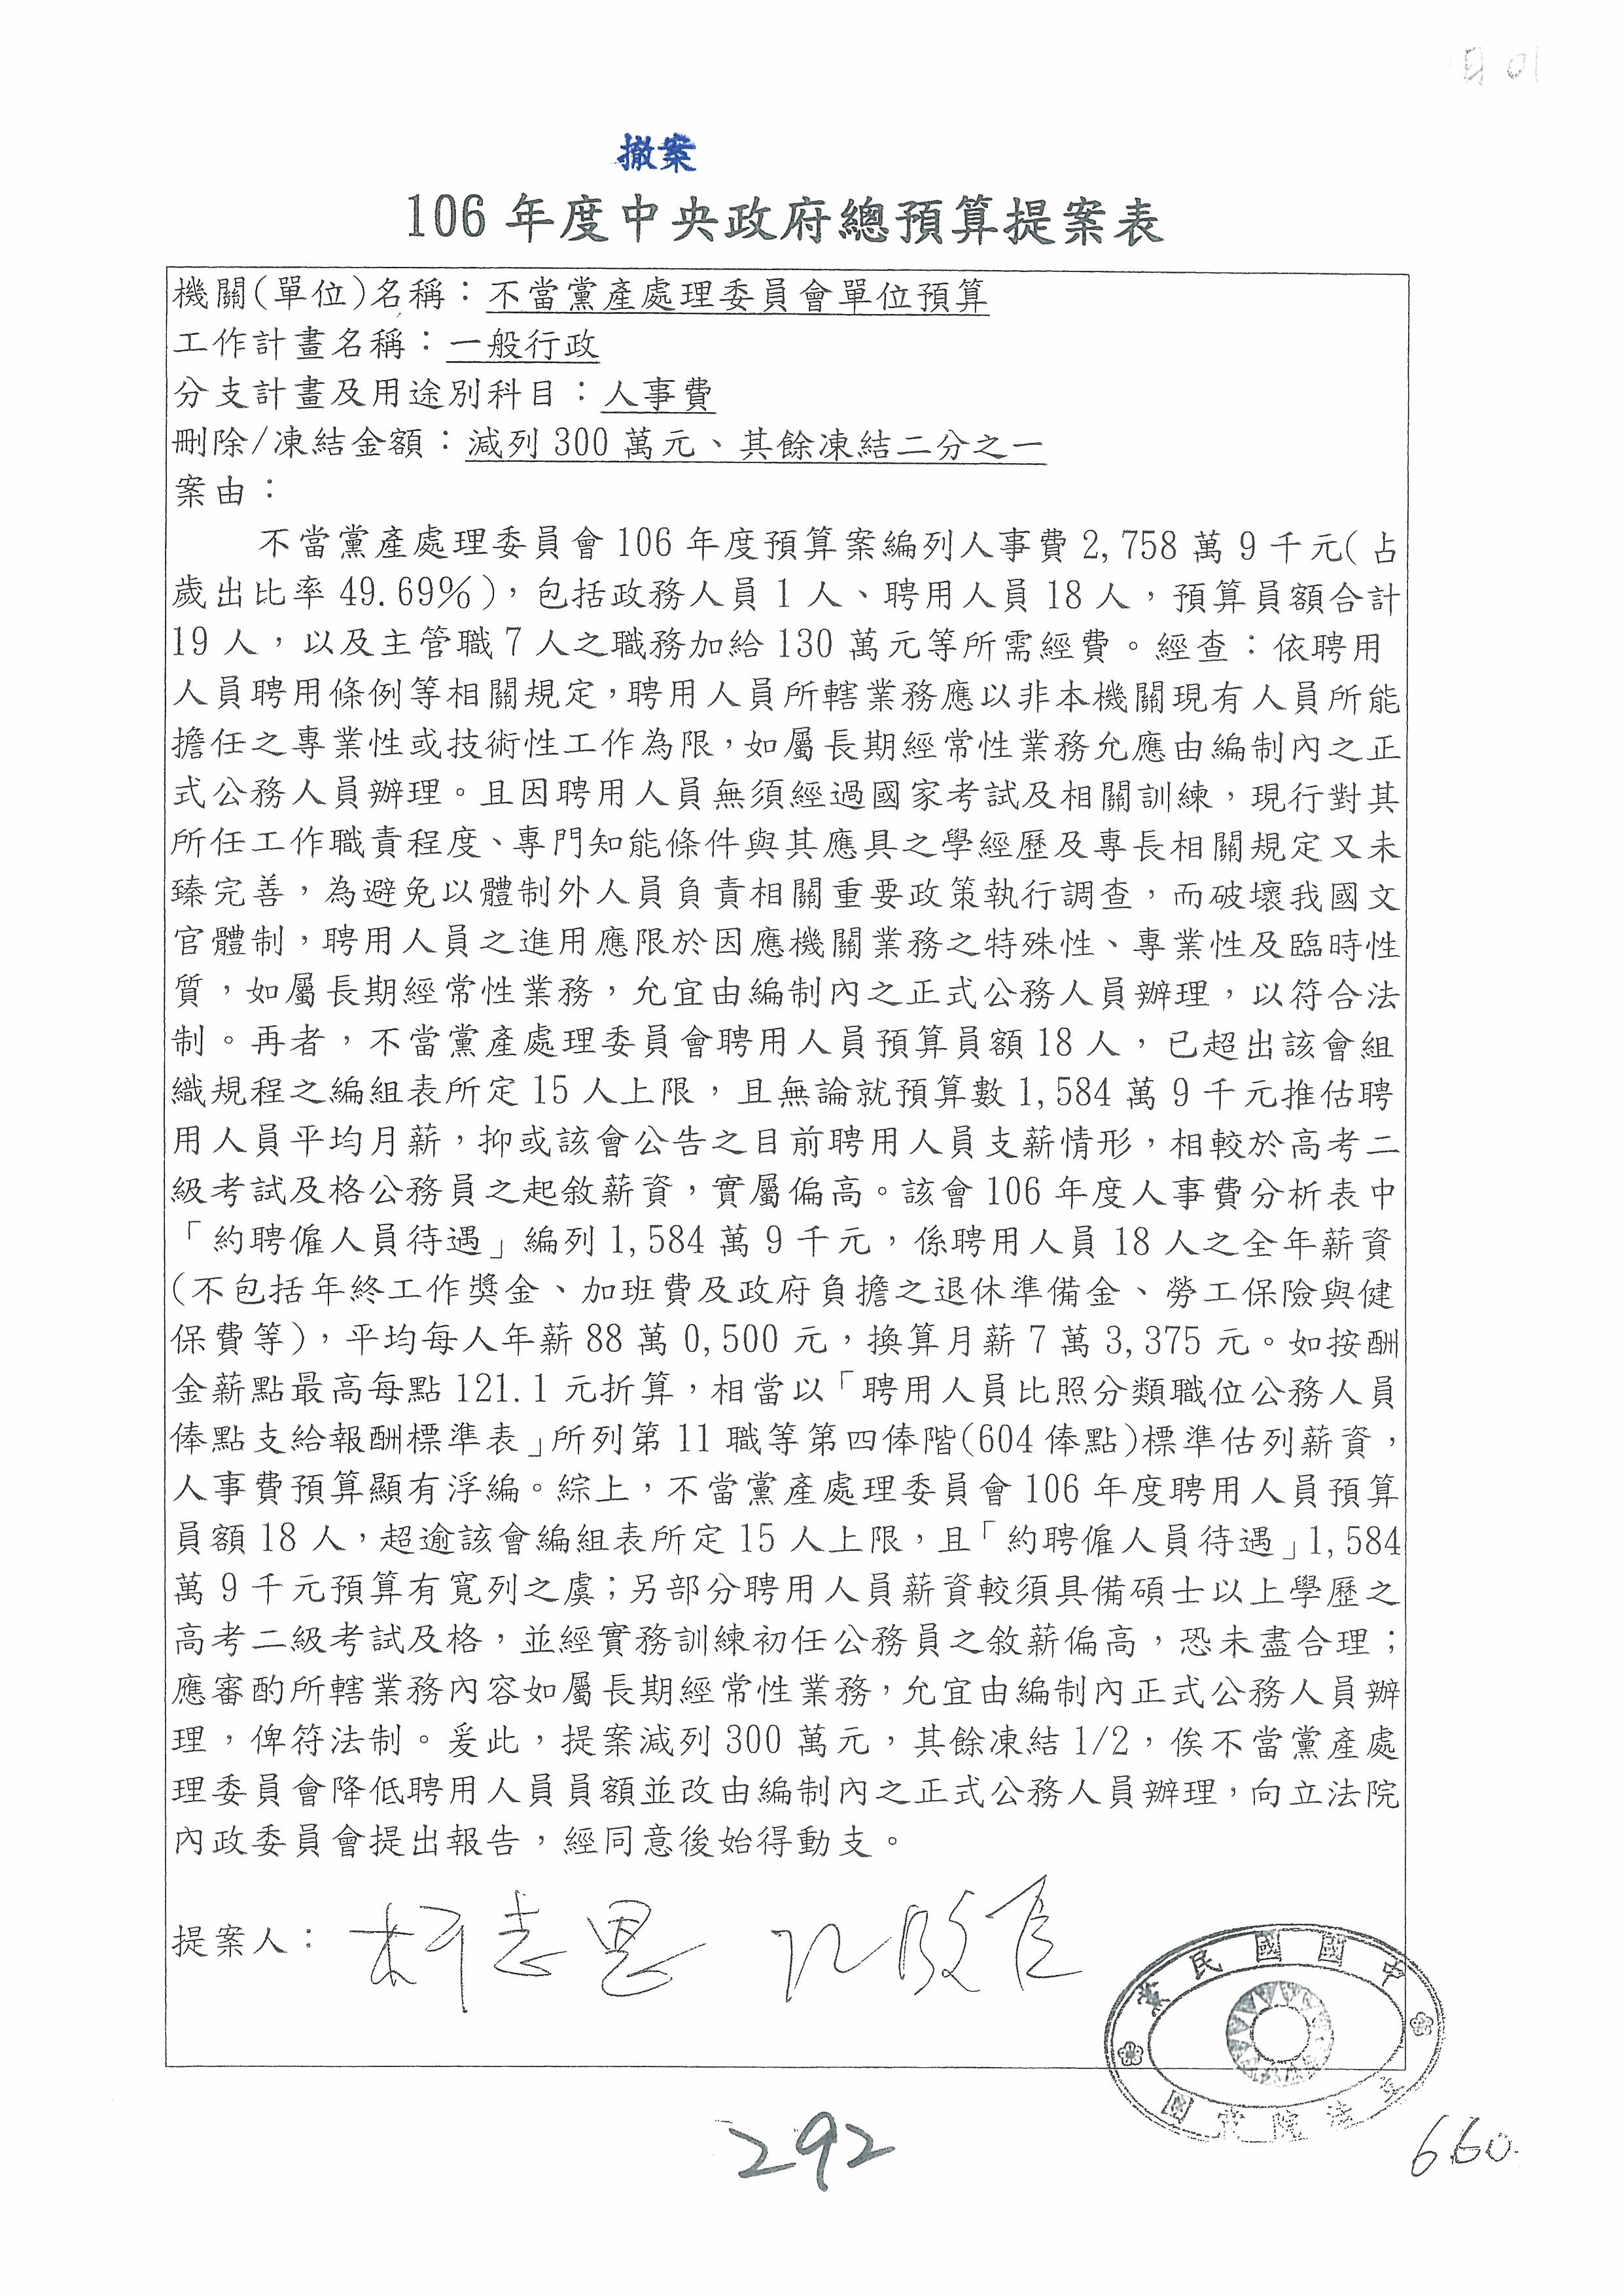 撤案
106 年度中央政府總預算提案表
機關(單位)名稱：不當黨產處理委員會單位預算
工作計畫名稱：一般行政
分支計畫及用途別科目：人事費
刪除/凍結金額：減列 300 萬元、其餘凍結二分之一
案由：
不當黨產處理委員會 106 年度預算案編列人事費 2,758 萬 9 千元(占
歲出比率 49.69%)，包括政務人員 1 人、聘用人員 18 人，預算員額合計
19 人，以及主管職 7 人之職務加給 130 萬元等所需經費。經查：依聘用
人員聘用條例等相關規定，聘用人員所轄業務應以非本機關現有人員所能
擔任之專業性或技術性工作為限，如屬長期經常性業務允應由編制內之正
式公務人員辦理。且因聘用人員無須經過國家考試及相關訓練，現行對其
所任工作職責程度、專門知能條件與其應具之學經歷及專長相關規定又未
臻完善，為避免以體制外人員負責相關重要政策執行調查，而破壞我國文
官體制，聘用人員之進用應限於因應機關業務之特殊性、專業性及臨時性
質，如屬長期經常性業務，允宜由編制內之正式公務人員辦理，以符合法
制。再者，不當黨產處理委員會聘用人員預算員額 18 人，已超出該會組
織規程之編組表所定 15 人上限，且無論就預算數 1,584 萬 9 千元推估聘
用人員平均月薪，抑或該會公告之目前聘用人員支薪情形，相較於高考二
級考試及格公務員之起敘薪資，實屬偏高。該會 106 年度人事費分析表中
「約聘僱人員待遇」編列 1,584 萬 9 千元，係聘用人員 18 人之全年薪資
(不包括年終工作獎金、加班費及政府負擔之退休準備金、勞工保險與健
保費等)，平均每人年薪 88 萬 0,500 元，換算月薪 7 萬 3,375 元。如按酬
金薪點最高每點 121.1 元折算，相當以「聘用人員比照分類職位公務人員
俸點支給報酬標準表」所列第 11 職等第四俸階(604 俸點)標準估列薪資，
人事費預算顯有浮編。綜上，不當黨產處理委員會 106 年度聘用人員預算
員額 18 人，超逾該會編組表所定 15 人上限，且「約聘僱人員待遇」1,584
萬 9 千元預算有寬列之虞；另部分聘用人員薪資較須具備碩士以上學歷之
高考二級考試及格，並經實務訓練初任公務員之敘薪偏高，恐未盡合理；
應審酌所轄業務內容如屬長期經常性業務，允宜由編制內正式公務人員辦
理，俾符法制。爰此，提案減列 300 萬元，其餘凍結 1/2，俟不當黨產處
理委員會降低聘用人員員額並改由編制內之正式公務人員辦理，向立法院
內政委員會提出報告，經同意後始得動支。
提案人：柯志恩
中國國民黨
立法院黨團
292
660